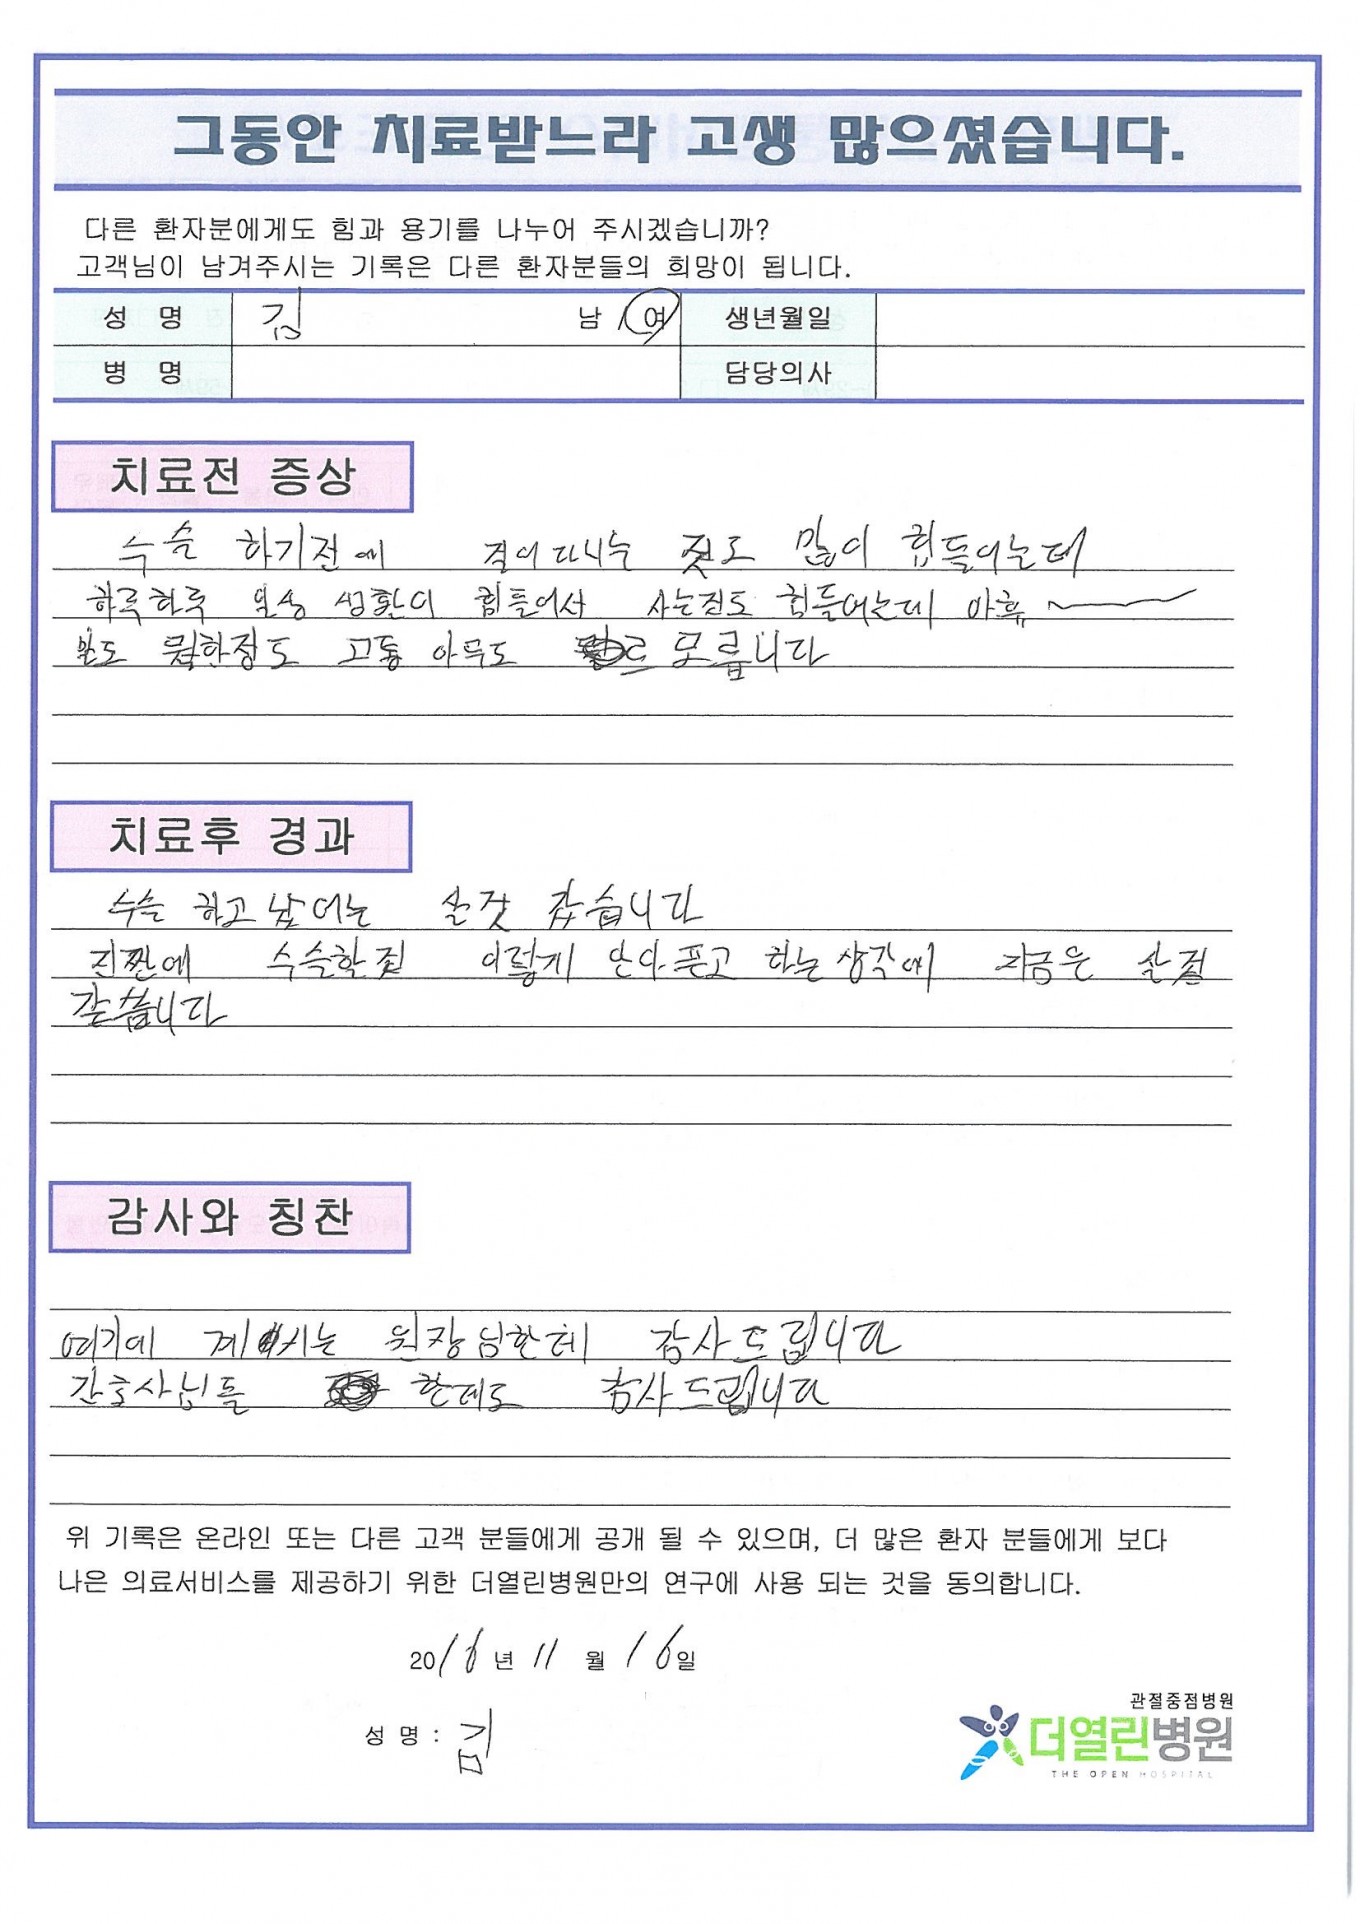 그동안 치료받느라 고생 많으셨습니다.
다른 환자분에게도 힘과 용기를 나누어 주시겠습니까?
고객님이 남겨주시는 기록은 다른 환자분들의 희망이 됩니다.
성 명 김 남 / 여 생년월일
병 명 담당의사
치료전 증상
수술 하기전에 걸어다니는 것도 많이 힘들어는데
하루하루 일상 생활이 힘들어서 사는것도 힘들어는데 아휴
말도 뭣한정도 고통 아무도 모릅니다
치료후 경과
수술 하고 났어는 살것 갔습니다
진짠에 수술할껄 이렇게 안아픈고 하는 생각에 지금은 살것
같습니다
감사와 칭찬
여기에 계시는 원장님한테 감사드립니다
간호사님들 한테도 감사드립니다
위 기록은 온라인 또는 다른 고객 분들에게 공개 될 수 있으며, 더 많은 환자 분들에게 보다
나은 의료서비스를 제공하기 위한 더열린병원만의 연구에 사용 되는 것을 동의합니다.
2016년 11월 16일
성 명 : 김
관절중점병원
더열린병원
THE OPEN HOSPITAL